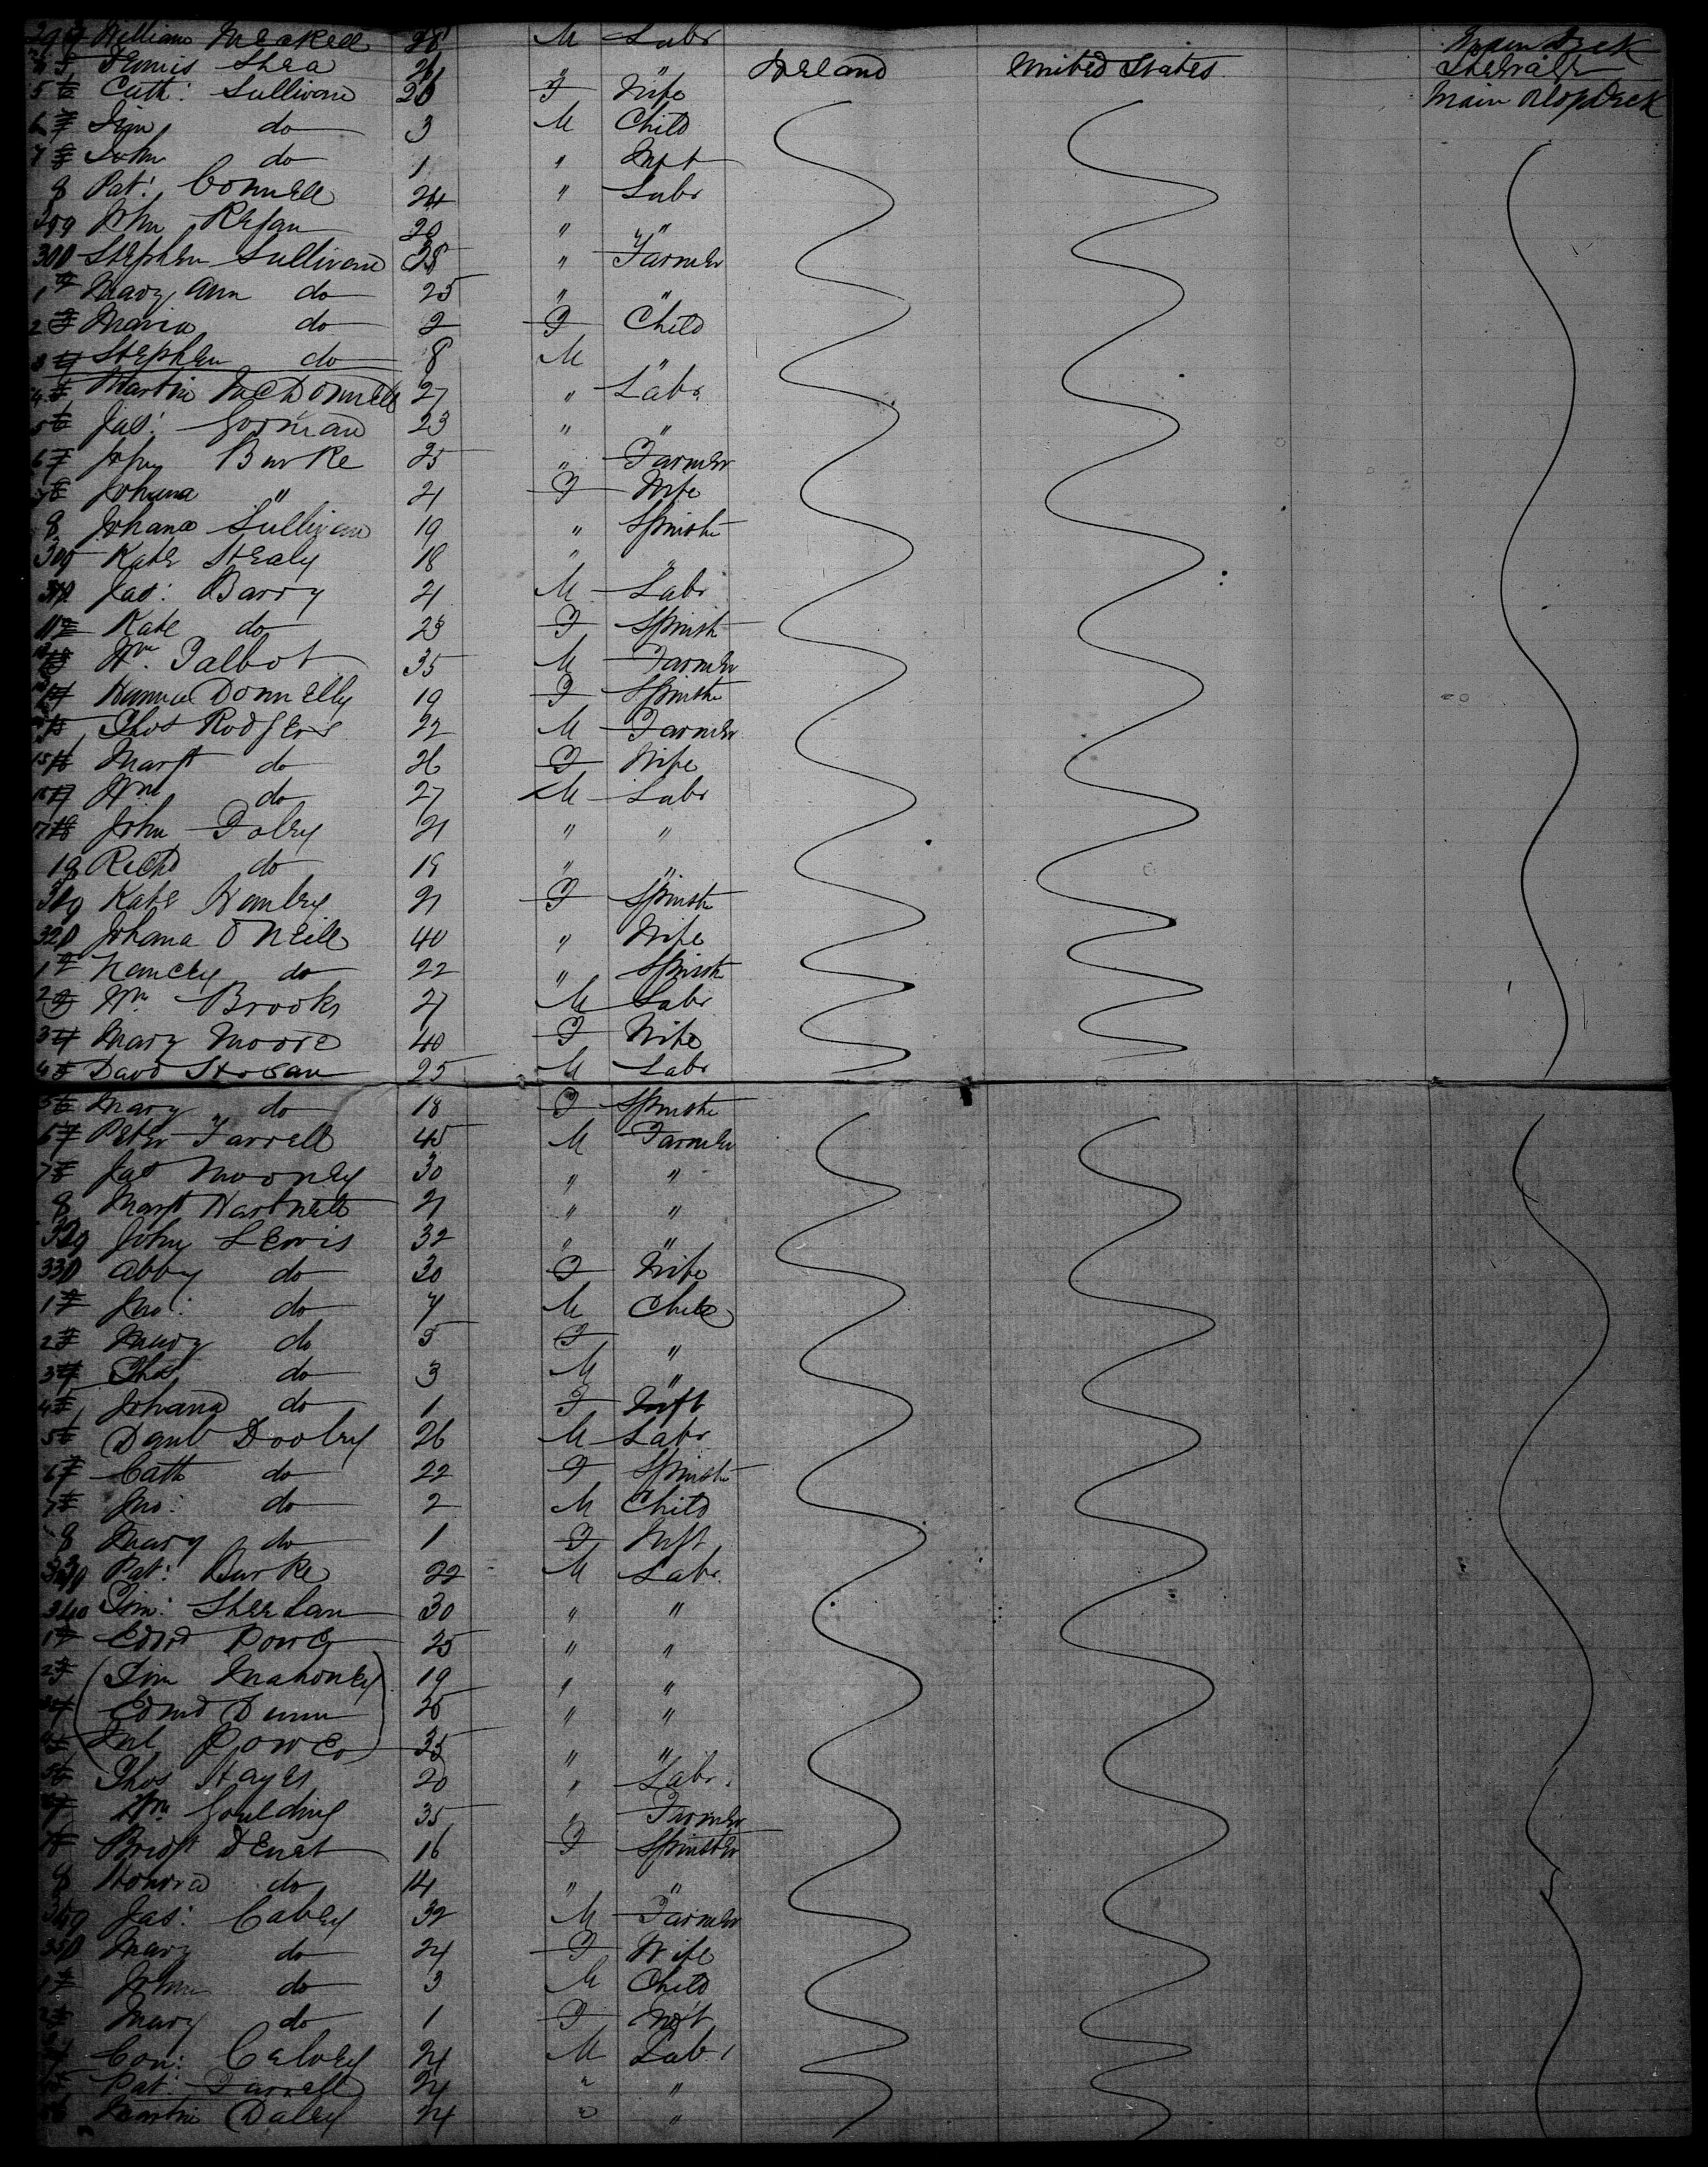 William Meckell 28 M Labr Main Deck
Dennis Shea 26 " " Ireland United States Steerage
Cath: Sullivan 26 F Wife Main Deck
Tim do 3 M Child
John do 1 " Inft
8 Pat: Connell 24 " Labr
299 John Regan 20 " "
300 Stephen Sullivan 28 " Farmer
1 Mary Ann do 25 " "
2 Maria do 2 F Child
3 Stephen do 8 M "
4 Martin McDonnell 27 " Labr
5 Jas: Gorman 23 " "
6 John Burke 25 " Farmer
7 Johana " 21 F Wife
8 Johana Sullivan 19 " Spinstr
309 Kate Healy 18 " "
310 Jas: Barry 21 M Labr
11 Kate do 23 F Spinstr
12 Wm Talbot 35 M Farmer
13 Hannah Donnelly 19 F Spinstr
14 Thos Rodgers 22 M Farmer
15 Margt do 26 F Wife
16 Wm do 27 M Labr
17 John Foley 21 " "
18 Richd do 19 " "
319 Kate Hanley 21 F Spinstr
320 Johana O'Neill 40 " Wife
1 Nancy do 22 " Spinstr
2 Wm Brooks 27 M Labr
3 Mary Moore 40 F Wife
4 David Horan 25 M Labr
5 Mary do 18 F Spinstr
6 Peter Farrell 45 M Farmer
7 Jas Mooney 30 " "
8 Margt Hartnett 21 " "
329 John Lewis 32 " "
330 Abby do 30 F Wife
1 Jno: do 7 M Child
2 Mary do 5 F "
3 Thos do 3 M "
4 Johana do 1 F Inft
5 Danl Dooley 26 M Labr
6 Cath do 22 F Spinstr
7 Jno: do 2 M Child
8 Mary do 1 F Inft
339 Pat: Burke 22 M Labr
340 Tim: Sheehan 30 " "
1 Edmd Power 25 " "
2 Tim Mahoney 19 " "
3 Edmd Dunn 25 " "
4 Power 35 " "
5 Thos Hayes 20 " Labr.
6 Wm Goulding 35 " Farmer
7 Bridgt 16 F Spinster
8 Honora do 14 " "
349 Jas: Casey 32 M Farmer
350 Mary do 24 F Wife
1 John do 3 M Child
2 Mary do 1 F Inft
Con: 24 M Labr
Pat: Farrell 24 " "
Martin Daley 24 " "